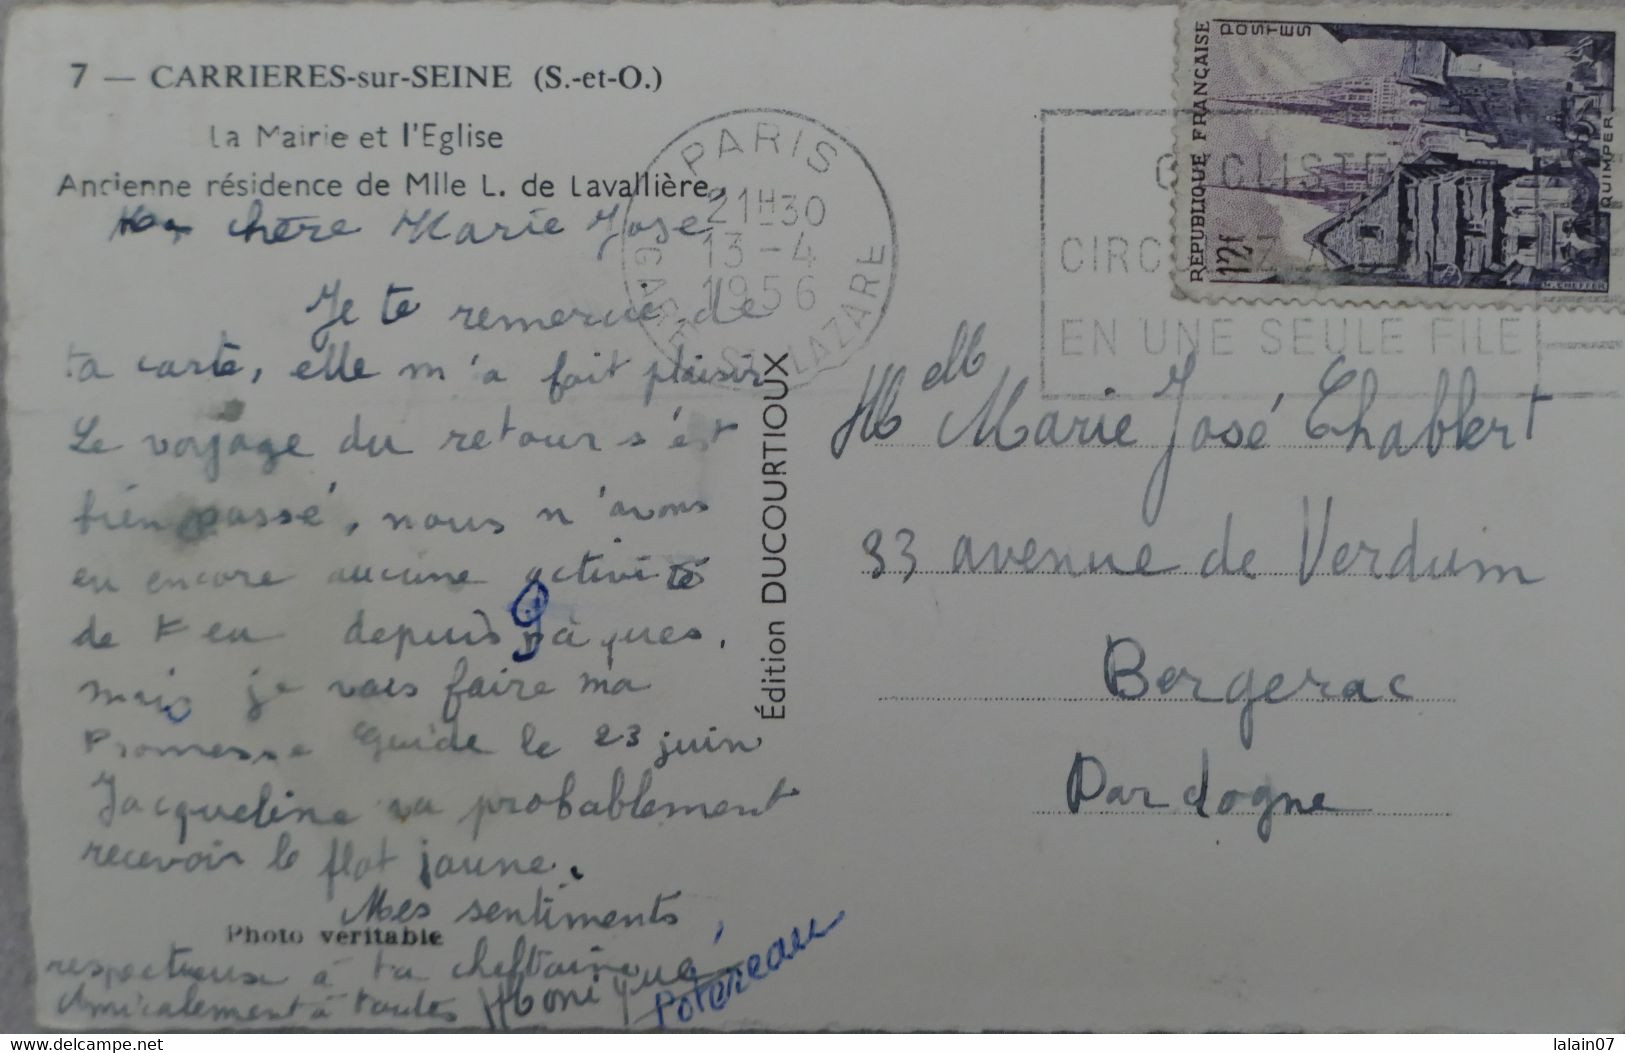 7 — CARRIERES-sur-SEINE (S.-et-O.)
La Mairie et l'Eglise
Ancienne résidence de Mlle L. de Lavallière.
Ma chère Marie José
Je te remercie de
ta carte, elle m'a fait plaisir
Le voyage du retour s'est
bien passé, nous n'avons
eu encore aucune activité
de Feu depuis Pâques.
mais je vais faire ma
Promesse Guide le 23 juin
Jacqueline va probablement
recevoir le flot jaune.
Mes sentiments
Photo véritable
respectueux à ta cheftaine
Amicalement à toutes Monique
Potereau
Édition DUCOURTIOUX
PARIS
21H30
13-4
1956
GARE ST LAZARE
CYCLISTES
EN UNE SEULE FILE
RÉPUBLIQUE FRANÇAISE
POSTES
12f
QUIMPER
M. CHEFFER
Melle Marie José Chabbert
33 avenue de Verdum
Bergerac
Dordogne
© delcampe.net
lalain07